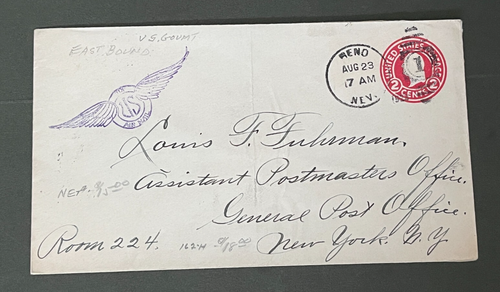 U.S. GOVMT
EAST BOUND
RENO
AUG 23
7 AM
NEV.
UNITED STATES
2 CENTS 2
1
US
AIR MAIL
Louis F. Fuhrman,
Assistant Postmasters Office,
General Post Office.
New York. N.Y
Room 224.
NET.